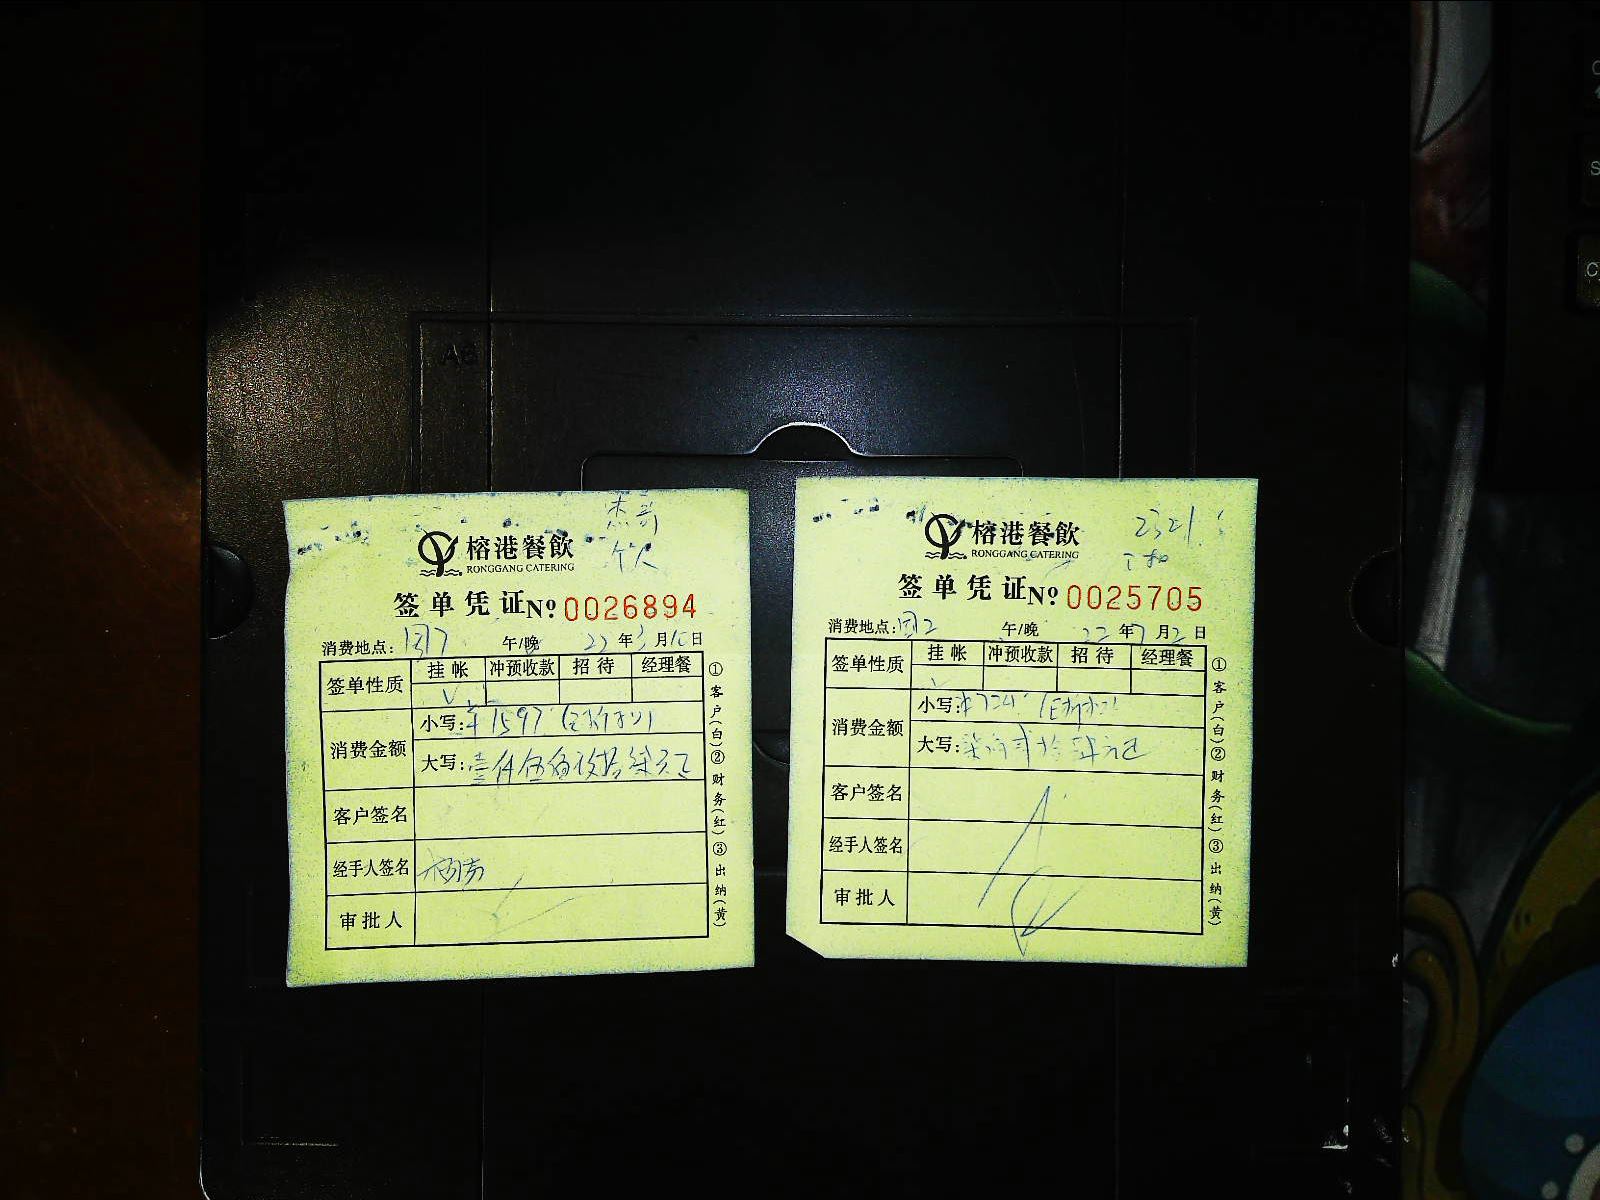 榕港餐飲
RONGGANG CATERING
签单凭证 № 0026894
消费地点: 午/晚 年 月 日
签单性质 挂帐 冲预收款 招待 经理餐
消费金额 小写: 1597
大写: 壹仟伍佰玖拾柒元
客户签名
经手人签名
审批人
①客户(白)②财务(红)③出纳(黄)
2321
榕港餐飲
RONGGANG CATERING
签单凭证 № 0025705
消费地点: 午/晚 22年7月2日
签单性质 挂帐 冲预收款 招待 经理餐
消费金额 小写:
大写:
客户签名
经手人签名
审批人
①客户(白)②财务(红)③出纳(黄)